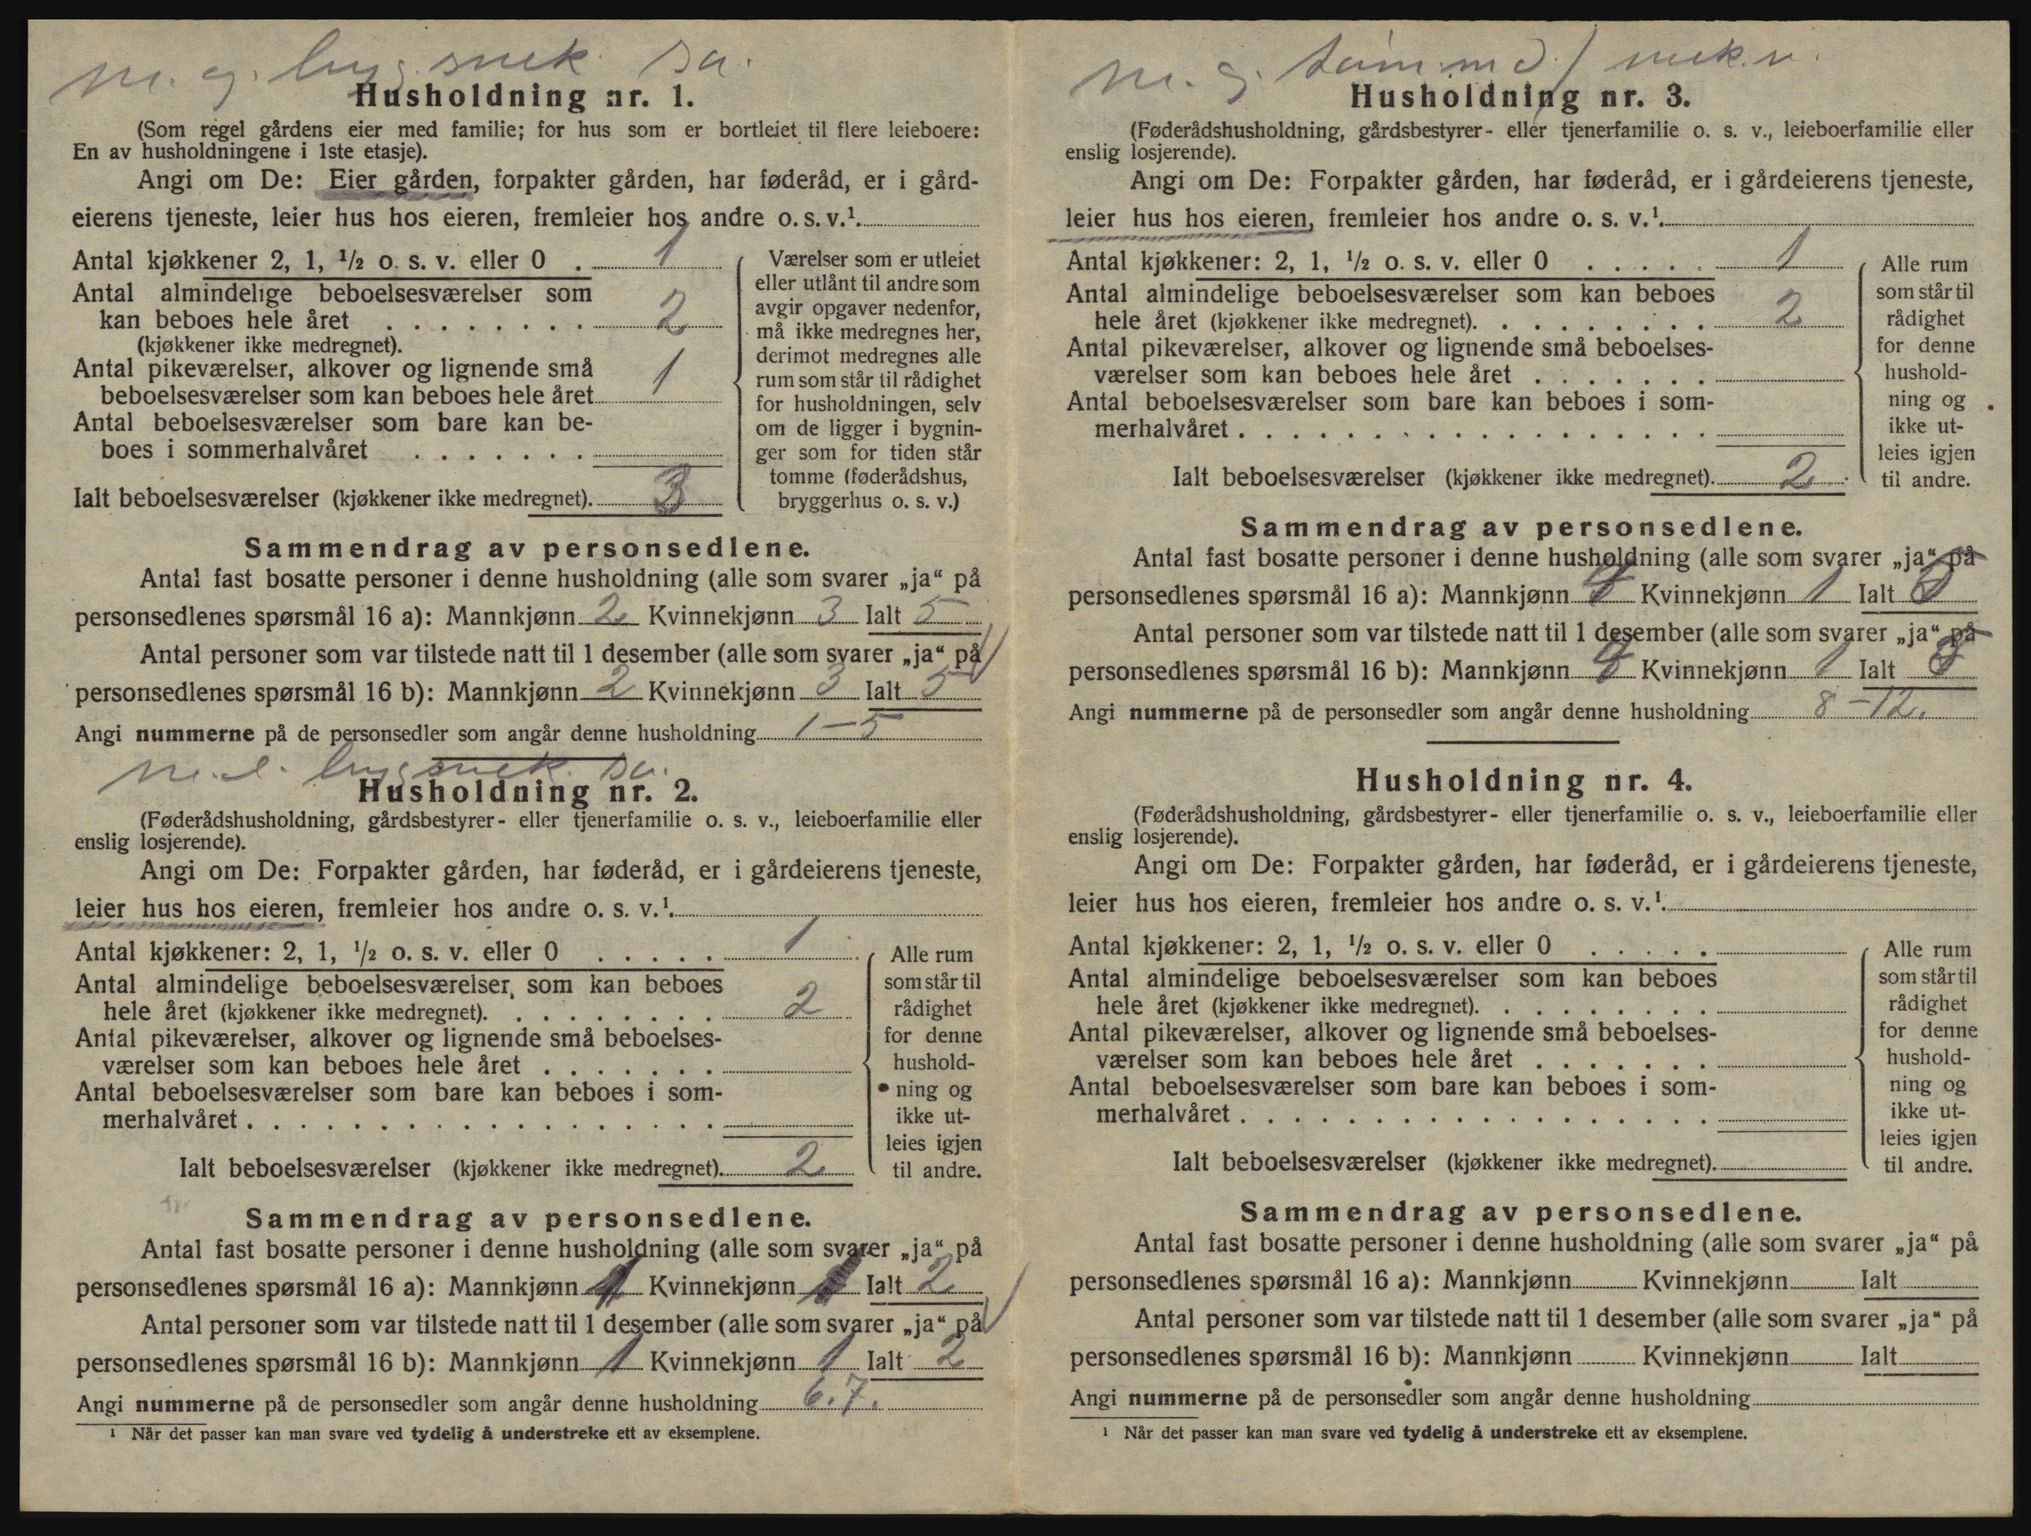 m. g. bygsnek. sa.
Husholdning nr. 1.
(Som regel gårdens eier med familie; for hus som er bortleiet til flere leieboere:
En av husholdningene i 1ste etasje).
Angi om De: Eier gården, forpakter gården, har føderåd, er i gård-
eierens tjeneste, leier hus hos eieren, fremleier hos andre o. s. v.¹
Antal kjøkkener 2, 1, ½ o. s. v. eller 0 . 1
Antal almindelige beboelsesværelser som
kan beboes hele året . . . . . . . . 2
(kjøkkener ikke medregnet).
Antal pikeværelser, alkover og lignende små
beboelsesværelser som kan beboes hele året 1
Antal beboelsesværelser som bare kan be-
boes i sommerhalvåret . . . . . . .
Ialt beboelsesværelser (kjøkkener ikke medregnet). 3
Værelser som er utleiet
eller utlånt til andre som
avgir opgaver nedenfor,
må ikke medregnes her,
derimot medregnes alle
rum som står til rådighet
for husholdningen, selv
om de ligger i bygnin-
ger som for tiden står
tomme (føderådshus,
bryggerhus o. s. v.)
Sammendrag av personsedlene.
Antal fast bosatte personer i denne husholdning (alle som svarer „ja“ på
personsedlenes spørsmål 16 a): Mannkjønn 2 Kvinnekjønn 3 Ialt 5
Antal personer som var tilstede natt til 1 desember (alle som svarer „ja“ på
personsedlenes spørsmål 16 b): Mannkjønn 2 Kvinnekjønn 3 Ialt 5
Angi nummerne på de personsedler som angår denne husholdning 1-5
m. l. bygsnek. sa.
Husholdning nr. 2.
(Føderådshusholdning, gårdsbestyrer- eller tjenerfamilie o. s. v., leieboerfamilie eller
enslig losjerende).
Angi om De: Forpakter gården, har føderåd, er i gårdeierens tjeneste,
leier hus hos eieren, fremleier hos andre o. s. v.¹
Antal kjøkkener: 2, 1, ½ o. s. v. eller 0 . . . . . 1
Antal almindelige beboelsesværelser som kan beboes
hele året (kjøkkener ikke medregnet). . . . . . . . . 2
Antal pikeværelser, alkover og lignende små beboelses-
værelser som kan beboes hele året . . . . . . .
Antal beboelsesværelser som bare kan beboes i som-
merhalvåret . . . . . . . . . . . . . . . . . .
Ialt beboelsesværelser (kjøkkener ikke medregnet). 2
Alle rum
som står til
rådighet
for denne
hushold-
ning og
ikke ut-
leies igjen
til andre.
Sammendrag av personsedlene.
Antal fast bosatte personer i denne husholdning (alle som svarer „ja“ på
personsedlenes spørsmål 16 a): Mannkjønn 1 Kvinnekjønn 1 Ialt 2
Antal personer som var tilstede natt til 1 desember (alle som svarer „ja“ på
personsedlenes spørsmål 16 b): Mannkjønn 1 Kvinnekjønn 1 Ialt 2
Angi nummerne på de personsedler som angår denne husholdning 6.7.
¹ Når det passer kan man svare ved tydelig å understreke ett av eksemplene.
m. g.
Husholdning nr. 3.
(Føderådshusholdning, gårdsbestyrer- eller tjenerfamilie o. s. v., leieboerfamilie eller
enslig losjerende).
Angi om De: Forpakter gården, har føderåd, er i gårdeierens tjeneste,
leier hus hos eieren, fremleier hos andre o. s. v.¹
Antal kjøkkener: 2, 1, ½ o. s. v. eller 0 . . . . . 1
Antal almindelige beboelsesværelser som kan beboes
hele året (kjøkkener ikke medregnet). . . . . . . . . 2
Antal pikeværelser, alkover og lignende små beboelses-
værelser som kan beboes hele året . . . . . . .
Antal beboelsesværelser som bare kan beboes i som-
merhalvåret . . . . . . . . . . . . . . . . . .
Ialt beboelsesværelser (kjøkkener ikke medregnet). 2
Alle rum
som står til
rådighet
for denne
hushold-
ning og
ikke ut-
leies igjen
til andre.
Sammendrag av personsedlene.
Antal fast bosatte personer i denne husholdning (alle som svarer „ja“ på
personsedlenes spørsmål 16 a): Mannkjønn Kvinnekjønn 1 Ialt
Antal personer som var tilstede natt til 1 desember (alle som svarer „ja“ på
personsedlenes spørsmål 16 b): Mannkjønn Kvinnekjønn 1 Ialt
Angi nummerne på de personsedler som angår denne husholdning 8-12.
Husholdning nr. 4.
(Føderådshusholdning, gårdsbestyrer- eller tjenerfamilie o. s. v., leieboerfamilie eller
enslig losjerende).
Angi om De: Forpakter gården, har føderåd, er i gårdeierens tjeneste,
leier hus hos eieren, fremleier hos andre o. s. v.¹
Antal kjøkkener: 2, 1, ½ o. s. v. eller 0 . . . . .
Antal almindelige beboelsesværelser som kan beboes
hele året (kjøkkener ikke medregnet). . . . . . . . .
Antal pikeværelser, alkover og lignende små beboelses-
værelser som kan beboes hele året . . . . . . .
Antal beboelsesværelser som bare kan beboes i som-
merhalvåret . . . . . . . . . . . . . . . . . .
Ialt beboelsesværelser (kjøkkener ikke medregnet).
Alle rum
som står til
rådighet
for denne
hushold-
ning og
ikke ut-
leies igjen
til andre.
Sammendrag av personsedlene.
Antal fast bosatte personer i denne husholdning (alle som svarer „ja“ på
personsedlenes spørsmål 16 a): Mannkjønn Kvinnekjønn Ialt
Antal personer som var tilstede natt til 1 desember (alle som svarer „ja“ på
personsedlenes spørsmål 16 b): Mannkjønn Kvinnekjønn Ialt
Angi nummerne på de personsedler som angår denne husholdning
¹ Når det passer kan man svare ved tydelig å understreke ett av eksemplene.